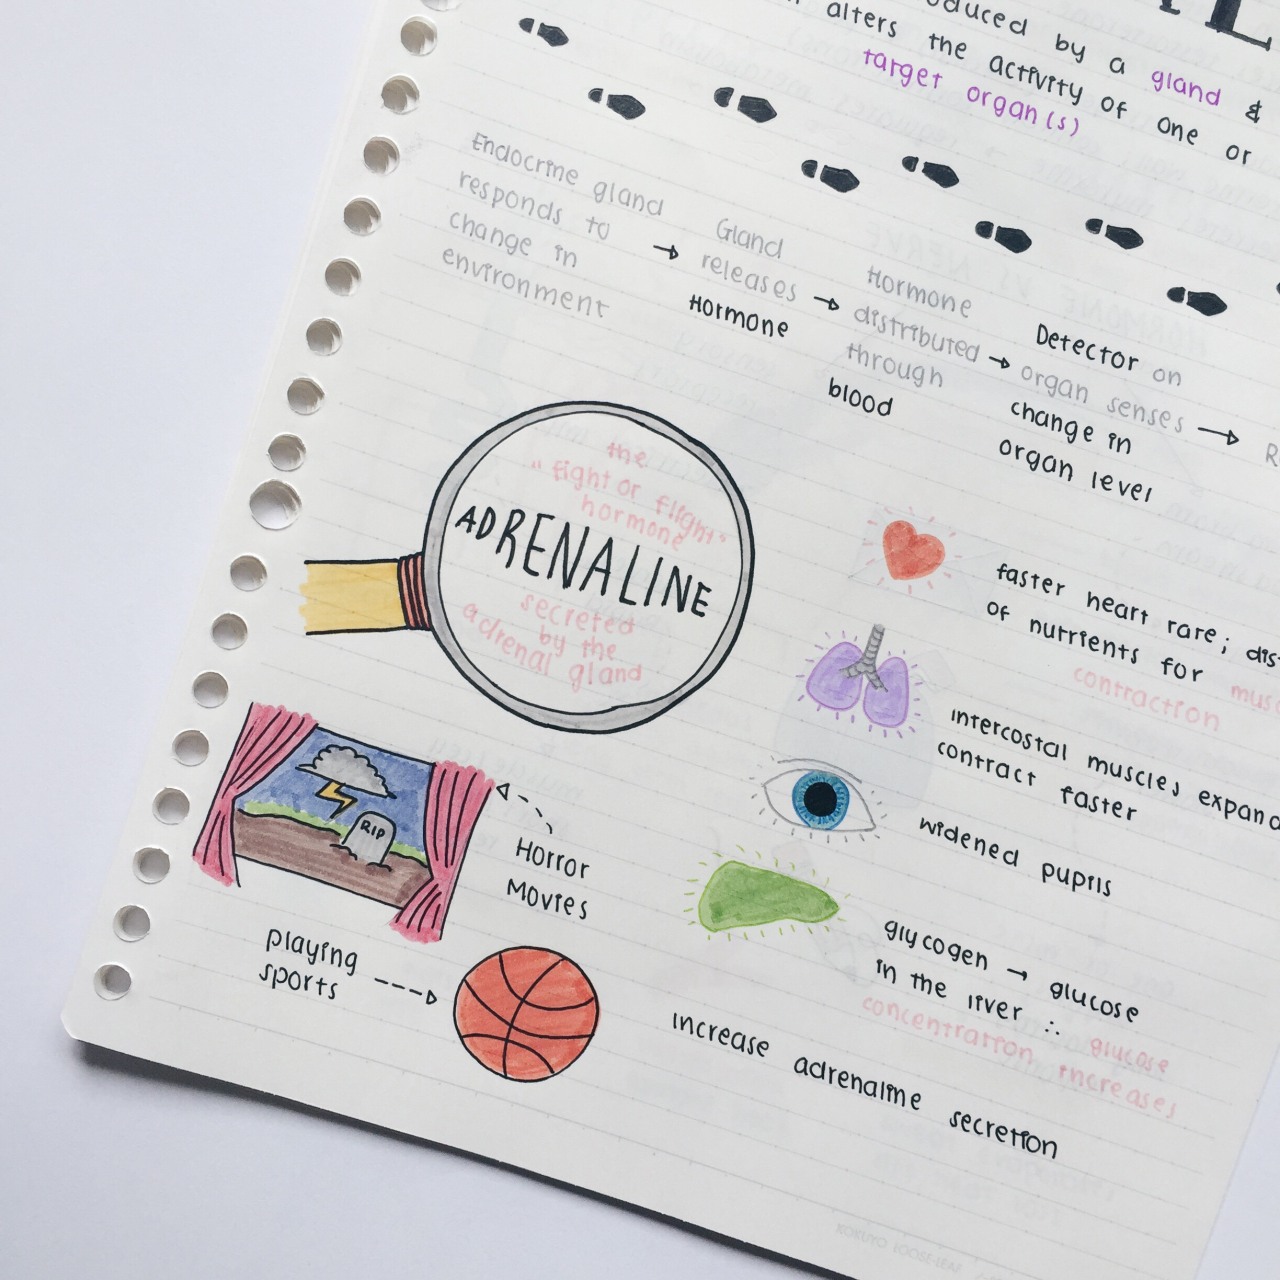 by a gland &
alters the activity of one or
target organ(s)
Endocrine gland
responds to
change in
environment
→ Gland
releases
Hormone
→ Hormone
distributed
through
blood
→ Detector on
organ senses
change in
organ level
→
the
"fight or flight"
hormone
ADRENALINE
secreted
by the
adrenal gland
faster heart rare;
of nutrients for
contraction
intercostal muscles expand
contract faster
widened pupils
RIP
Horror
Movies
glycogen → glucose
in the liver ∴ glucose
concentration increases
playing
sports
increase adrenaline secretion
KOKUYO LOOSE-LEAF